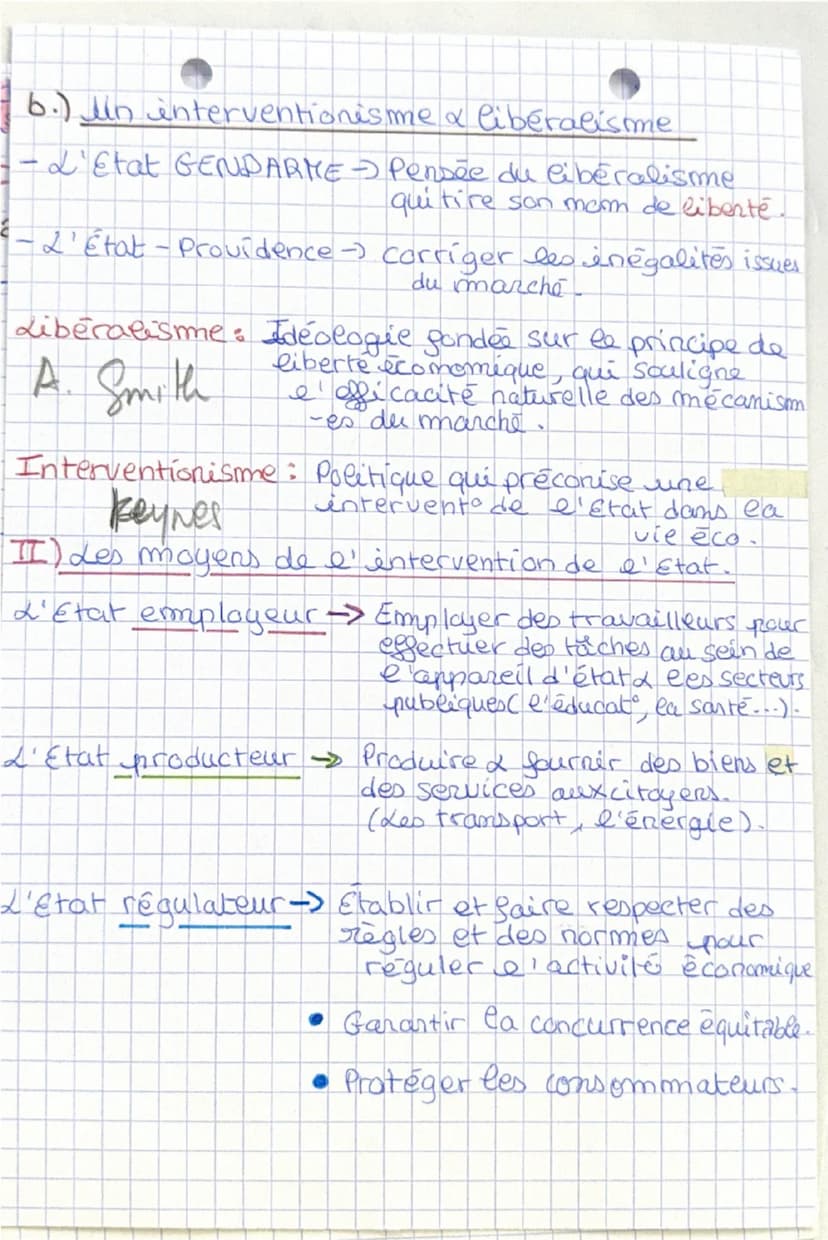 b.) Un interventionisme & libéralisme
- L'Etat GENDARME → Pensée du libéralisme
qui tire son nom de liberté.
- L'État - Providence → corriger les inégalités issues
du marché.
Libéralisme : Idéologie fondée sur le principe de
liberté économique, qui souligne
A. Smith
l'efficacité naturelle des mécanism
-es du marché.
Interventionisme : Politique qui préconise une
intervent° de l'Etat dans la
keynes
vie éco.
II) Les moyens de l'intervention de l'Etat.
L'Etat employeur → Employer des travailleurs pour
effectuer des tâches au sein de
l'appareil d'état & les secteurs
publiques (l'éducat°, la santé...).
L'Etat producteur → Produire & fournir des biens et
des services aux citoyens.
(Les transport, l'énergie).
L'Etat régulateur → Établir et faire respecter des
règles et des normes pour
réguler l'activité économique
• Garantir la concurrence équitable.
• Protéger les consommateurs.